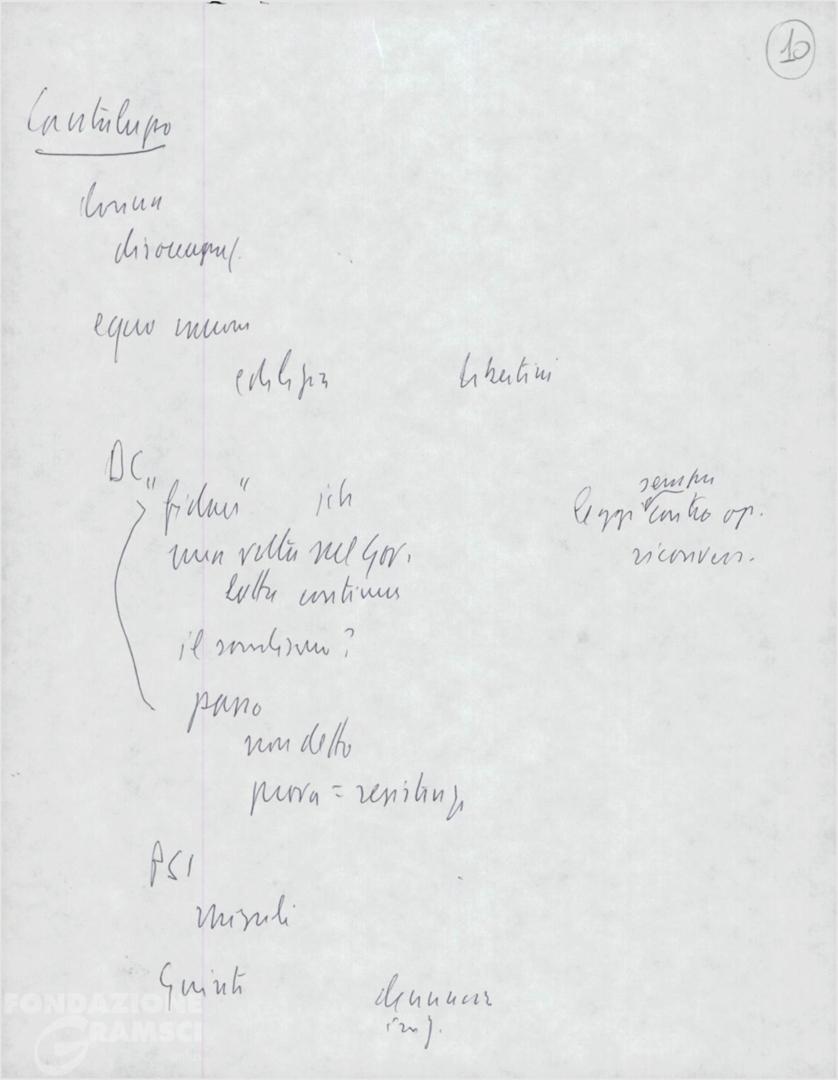 10
Cantalupo
donna
disoccupaz.
equo canone
edilizia libertini
DC
"fidarsi"
sempre
leggi contro op.
una volta nel Gov.
riconvers.
lotta continua
il
?
passo
non detto
prova = resistenz.
PSI
Giunte
denuncia
FONDAZIONE
GRAMSCI